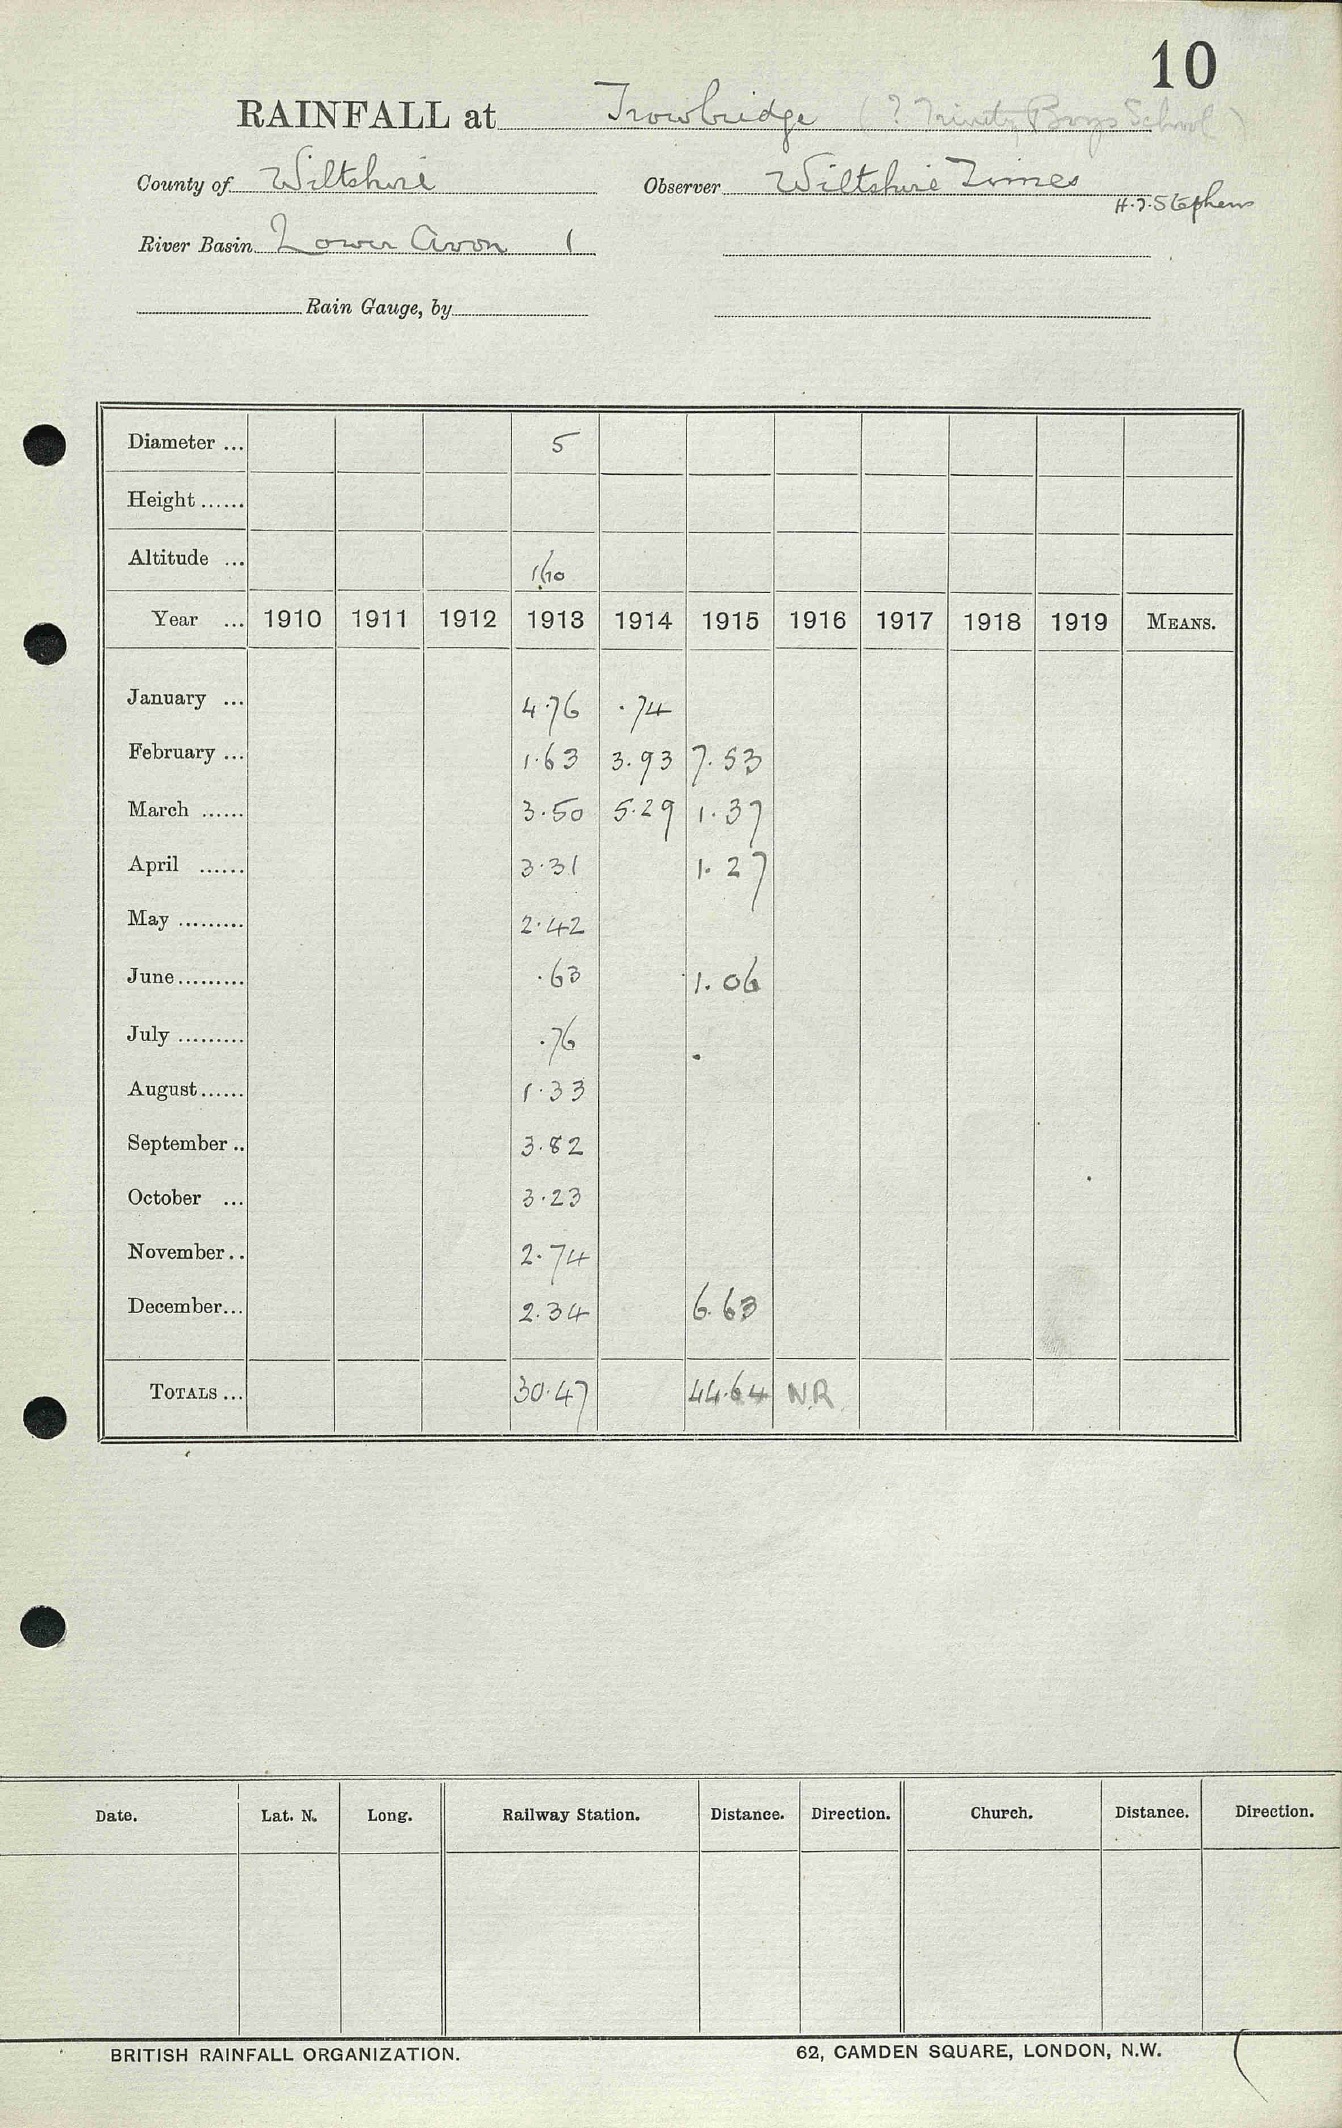 10
RAINFALL at Trowbridge (? Trinity Boys School)
County of Wiltshire Observer Wiltshire Times
H.J. Stephens
River Basin Lower Avon 1
Rain Gauge, by
Diameter ... 5
Height ......
Altitude ... 160
Year ... 1910 1911 1912 1913 1914 1915 1916 1917 1918 1919 MEANS.
January ... 4.76 .74
February ... 1.63 3.93 7.53
March ...... 3.50 5.29 1.37
April ...... 3.31 1.27
May ......... 2.42
June ......... .63 1.06
July ......... .76
August ...... 1.33
September .. 3.82
October ... 3.23
November .. 2.74
December ... 2.34 6.63
TOTALS ... 30.47 44.64 N.R.
Date. Lat. N. Long. Railway Station. Distance. Direction. Church. Distance. Direction.
BRITISH RAINFALL ORGANIZATION. 62, CAMDEN SQUARE, LONDON, N.W.